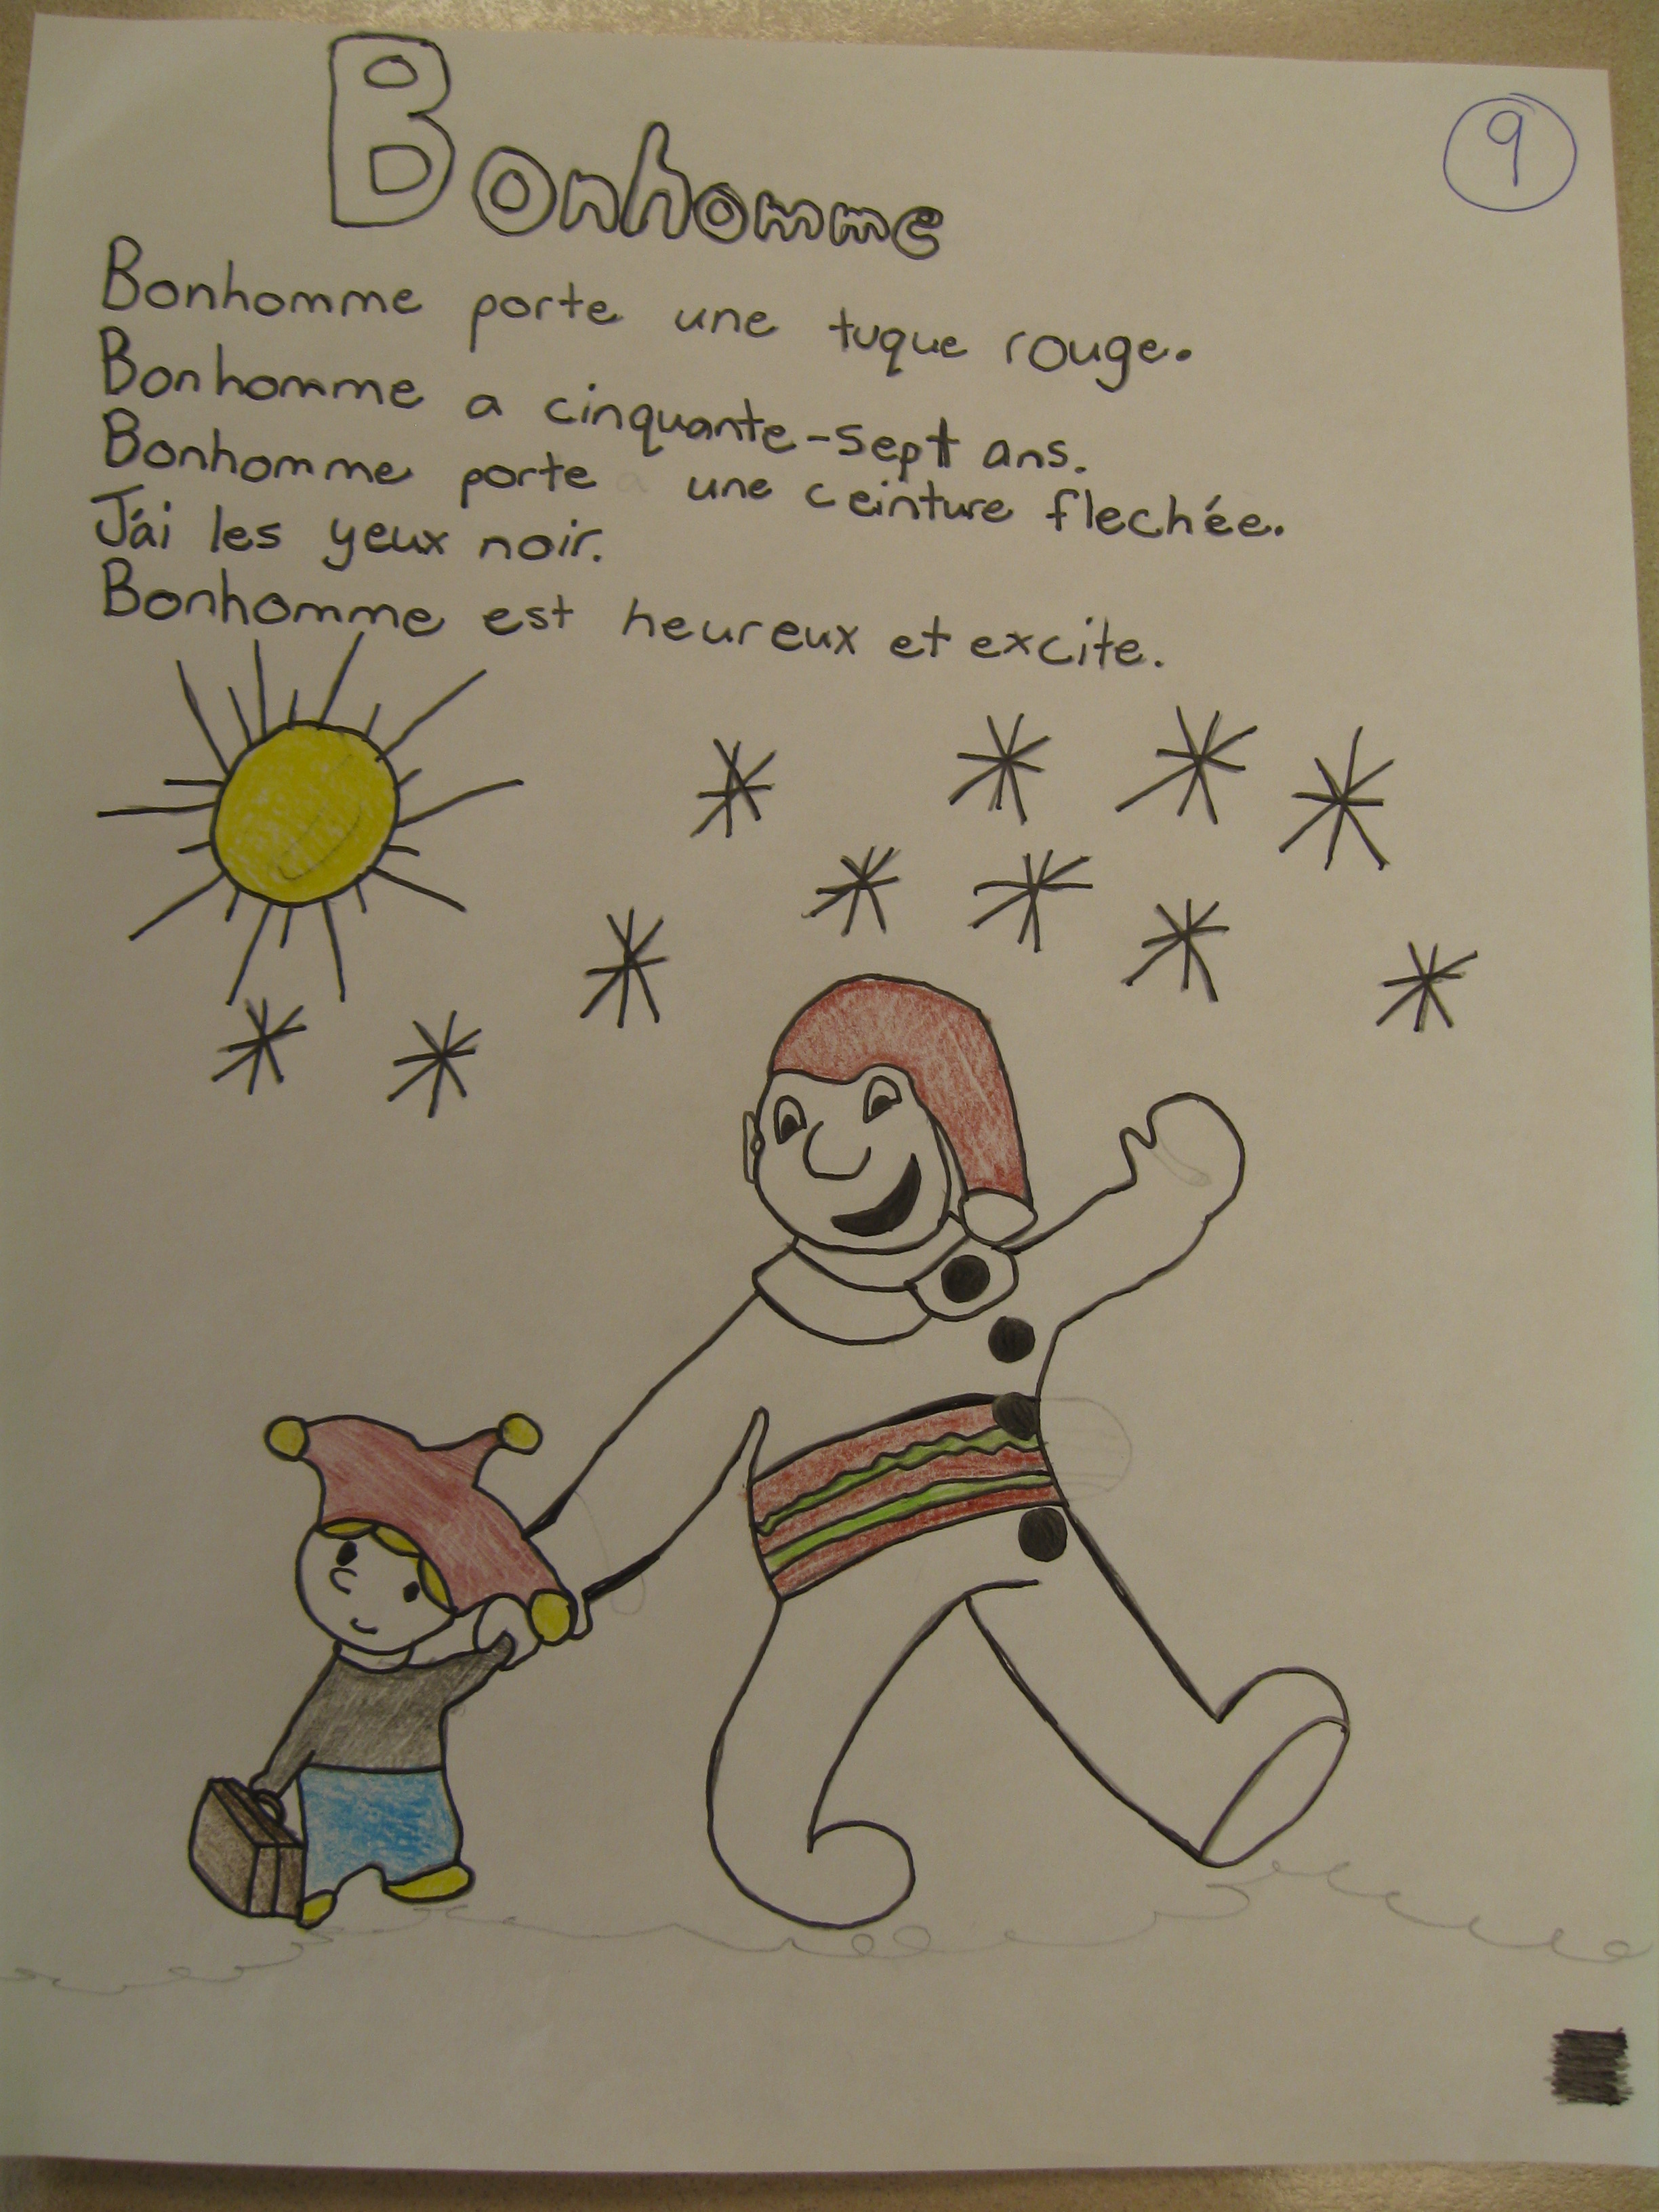 Bonhomme
9
Bonhomme porte une tuque rouge.
Bonhomme a cinquante-sept ans.
Bonhomme porte une ceinture flechée.
J'ai les yeux noir.
Bonhomme est heureux et excite.